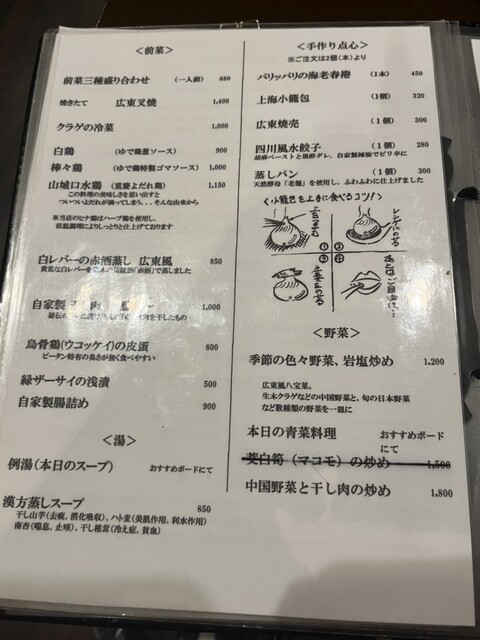 ＜前菜＞
前菜三種盛り合わせ （一人前） 880
焼きたて 広東叉焼 1,400
クラゲの冷菜 1,000
白鶏 （ゆで鶏葱ソース） 900
棒々鶏 （ゆで鶏特製ゴマソース） 1,000
山城口水鶏 （重慶よだれ鶏） 1,150
この料理の美味しさを思い出すと
ついついよだれが垂ってしまう...そんな由来から
※当店のヒナ鶏はハーブ鶏を使用し、
低温調理によりしっとりと仕上げております
白レバーの赤酒蒸し 広東風 850
自家製 肉 1,000
烏骨鶏（ウコッケイ）の皮蛋 800
ピータン特有の臭さが無く食べやすい
緑ザーサイの浅漬 500
自家製腸詰め 900
＜湯＞
例湯（本日のスープ） おすすめボードにて
漢方蒸しスープ 850
干し山芋（去痰、消化吸収）、ハト麦（美肌作用、利水作用）
南杏（喘息、止咳）、干し椎茸（冷え症、貧血）
＜手作り点心＞
※ご注文は2個（本）より
パリッパリの海老春捲 （1本） 450
上海小籠包 （1個） 320
広東焼売 （1個） 300
四川風水餃子 （1個） 280
胡麻ペーストと黒酢ダレ、自家製辣油でピリ辛に
蒸しパン （1個） 300
天然酵母「老麺」を使用し、ふわふわに仕上げました
＜小籠包を上手に食べるコツ！＞
①
②
レンゲにのせる
③
④
あとはご自由に…
＜野菜＞
季節の色々野菜、岩塩炒め 1,200
広東風八宝菜。
生木クラゲなどの中国野菜と、旬の日本野菜
など数種類の野菜を一皿に
本日の青菜料理 おすすめボード
にて
茭白筍（マコモ）の炒め 1,500
中国野菜と干し肉の炒め 1,800